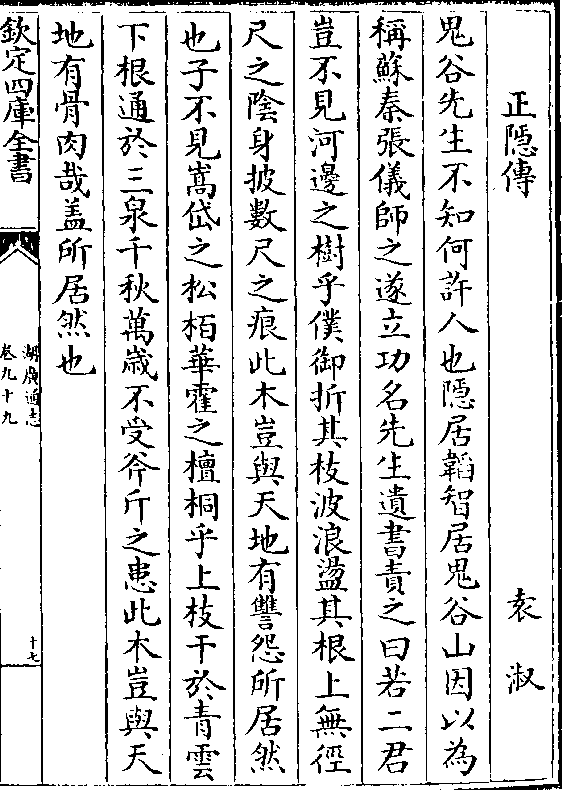 正隱傳　袁淑
鬼谷先生不知何許人也隱居韜智居鬼谷山因以為
稱蘇秦張儀師之遂立功名先生遺書責之曰若二君
豈不見河邊之樹乎僕御折其枝波浪盪其根上無徑
尺之陰身披數尺之痕此木豈與天地有讐怨所居然
也子不見嵩岱之松栢華霍之檀桐乎上枝干於青雲
下根通於三泉千秋萬歳不受斧斤之患此木豈與天
地有骨肉哉盖所居然也
欽定四庫全書
湖廣通志
卷九十九
十七